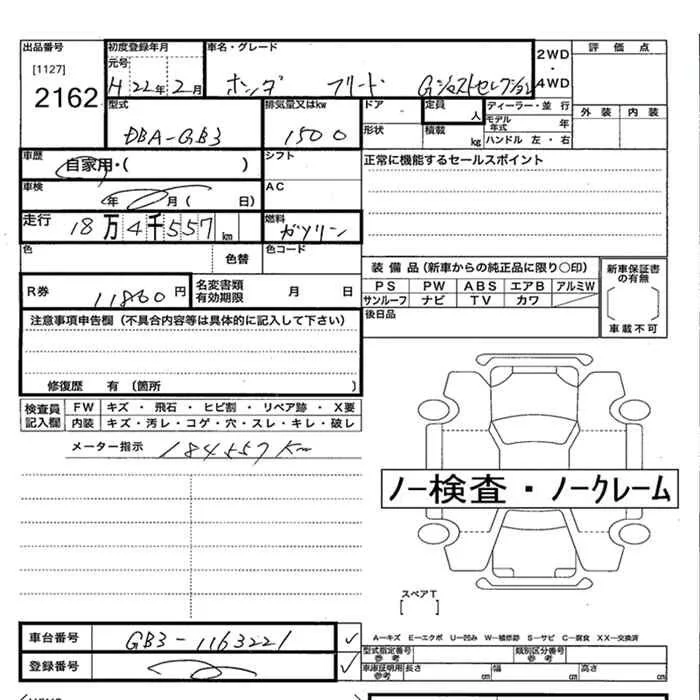 出品番号 初度登録年月 車名・グレード 2WD・4WD 評価点
[1127] 元号
2162 H22年2月 ホンダ フリード Gジャストセレクション
型式 排気量又はkw ドア 定員 人 ディーラー・並行 外装 内装
DBA-GB3 1500 形状 積載 kg モデル年式 年
ハンドル 左・右
車歴 自家用・( ) シフト 正常に機能するセールスポイント
車検 年 月( 日) AC
走行 18万4千557km 燃料 ガソリン
色 色替 色コード
装備品(新車からの純正品に限り○印) 新車保証書の有無
R券 11860円 名変書類有効期限 月 日 PS PW ABS エアB アルミW
サンルーフ ナビ TV カワ
注意事項申告欄(不具合内容等は具体的に記入して下さい) 後日品 車載不可
修復歴 有(箇所 )
検査員記入欄 FW キズ・飛石・ヒビ割・リペア跡・X要
内装 キズ・汚レ・コゲ・穴・スレ・キレ・破レ
メーター指示 184557Km
ノー検査・ノークレーム
スペアT
[ ]
車台番号 GB3-1163221 ✓ A−キズ E−エクボ U−凹み W−補修跡 S−サビ C−腐食 XX−交換済
型式指定番号 参考 類別区分番号 参考
登録番号 ✓ 車庫証明用 参考 長さ cm 幅 cm 高さ cm